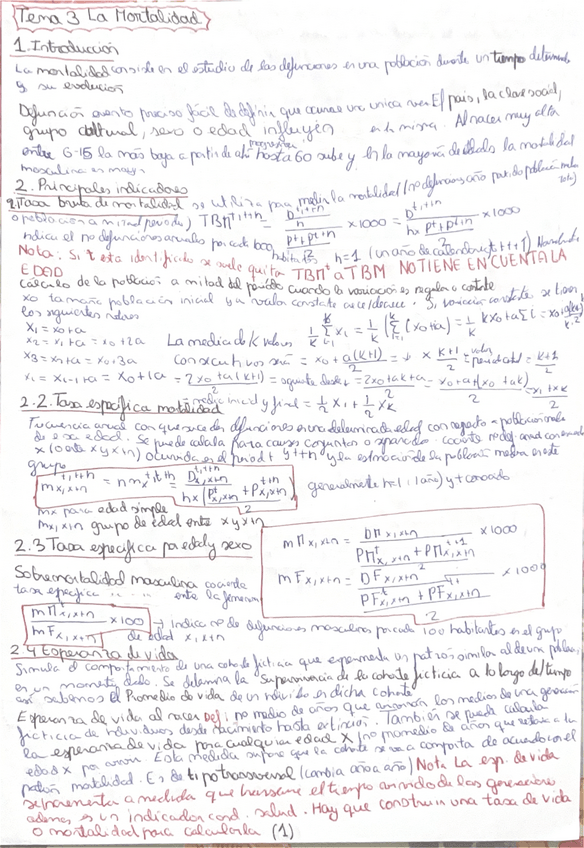 Tema 3 La Mortalidad
1. Introducción
La mortalidad consiste en el estudio de las defunciones en una población durante un tiempo determinado
y su evolución
Defunción evento preciso fácil de definir que ocurre una unica vez El pais, la clase social,
grupo cultural, sexo o edad influyen en la misma. Al nacer muy alta
entre 6-15 la más baja a partir de ahí hasta 60 sube y En la mayoría de edades la mortalidad
masculina es mayor
2. Principales indicadores
Tasa bruta de mortalidad se utiliza para medir la mortalidad (nº defunciones año partido población
o población a mitad periodo) TBM^{t,t+h} = D^{t,t+h} / h / (P^t+P^{t+h} / 2) × 1000 = D^{t,t+h} / (h × P^t+P^{t+h} / 2) × 1000
indica el nº defunciones anuales por cada 1000 habitantes. h=1 (un año de calendario t, t+1)
Nota: Si t esta identificado se suele quitar TBM^t a TBM NO TIENE EN CUENTA LA
EDAD
Calculo de la población a mitad del periodo cuando la variación es regular o cte
x0 tamaño población inicial y a valor constante crece/decrece. Si variación constante se tienen
los siguientes valores
x1 = x0+a
x2 = x1+a = x0+2a La media de k valores 1/k Σ xi = 1/k (Σ (x0+ai)) =
x3 = x2+a = x0+3a consecutivos será = x0 + a(k+1)/2
xi = xi-1+a = x0+ia = 2x0+a(k+1)/2 = = 2x0+ak+a/2 = x0+a+(x0+ak)/2 = x1+xk/2
media inicial y final = 1/2 x1 + 1/2 xk
2.2. Tasa específica mortalidad
Frecuencia anual con que suceden defunciones en una determinada edad con respecto a población media
de esa edad. Se puede calcular para causas conjuntas o separadas. cociente nº def. anual con edad
x (o entre x y x+n) ocurridas en el period t y t+h y la estimación de la población media en este
grupo
m x,x+n^{t,t+h} = n m x^{t,t+h} = D x,x+n^{t,t+h} / (h × (P^t x,x+n + P^{t+h} x,x+n) / 2) generalmente h=1 (1 año) y t conocido
mx para edad simple
mx,x+n grupo de edad entre x y x+n
2.3 Tasa específica por edad y sexo
mM x,x+n = DM x,x+n / (PM^t x,x+n + PM^{t+1} x,x+n / 2) × 1000
mF x,x+n = DF x,x+n / (PF^t x,x+n + PF x,x+n / 2) × 1000
Sobremortalidad masculina cociente
tasa específica " " " entre la femenina
mM x,x+n / mF x,x+n × 100 → indica nº de defunciones masculinas por cada 100 habitantes en el grupo
de edad x, x+n
2.4 Esperanza de vida
Simula el comportamiento de una cohorte ficticia que experimenta un patrón similar al de una población
en un momento dado. Se determina la Supervivencia de la cohorte ficticia a lo largo del tiempo
así sabemos el Promedio de vida de un individuo en dicha cohorte
Esperanza de vida al nacer Def: nº medio de años que los medios de una generación
ficticia de individuos desde nacimiento hasta extinción. También se puede calcular
la esperanza de vida para cualquier edad x (nº promedio de años que restan a la
edad x por . Esta medida supone que la cohorte se va a comportar de acuerdo con el
patrón mortalidad. Es de tipo transversal (cambia año a año) Nota La esp. de vida
se incrementa a medida que transcurre el tiempo en vida de las generaciones
además es un indicador cond. salud. Hay que construir una tasa de vida
o mortalidad para calcularla (1)